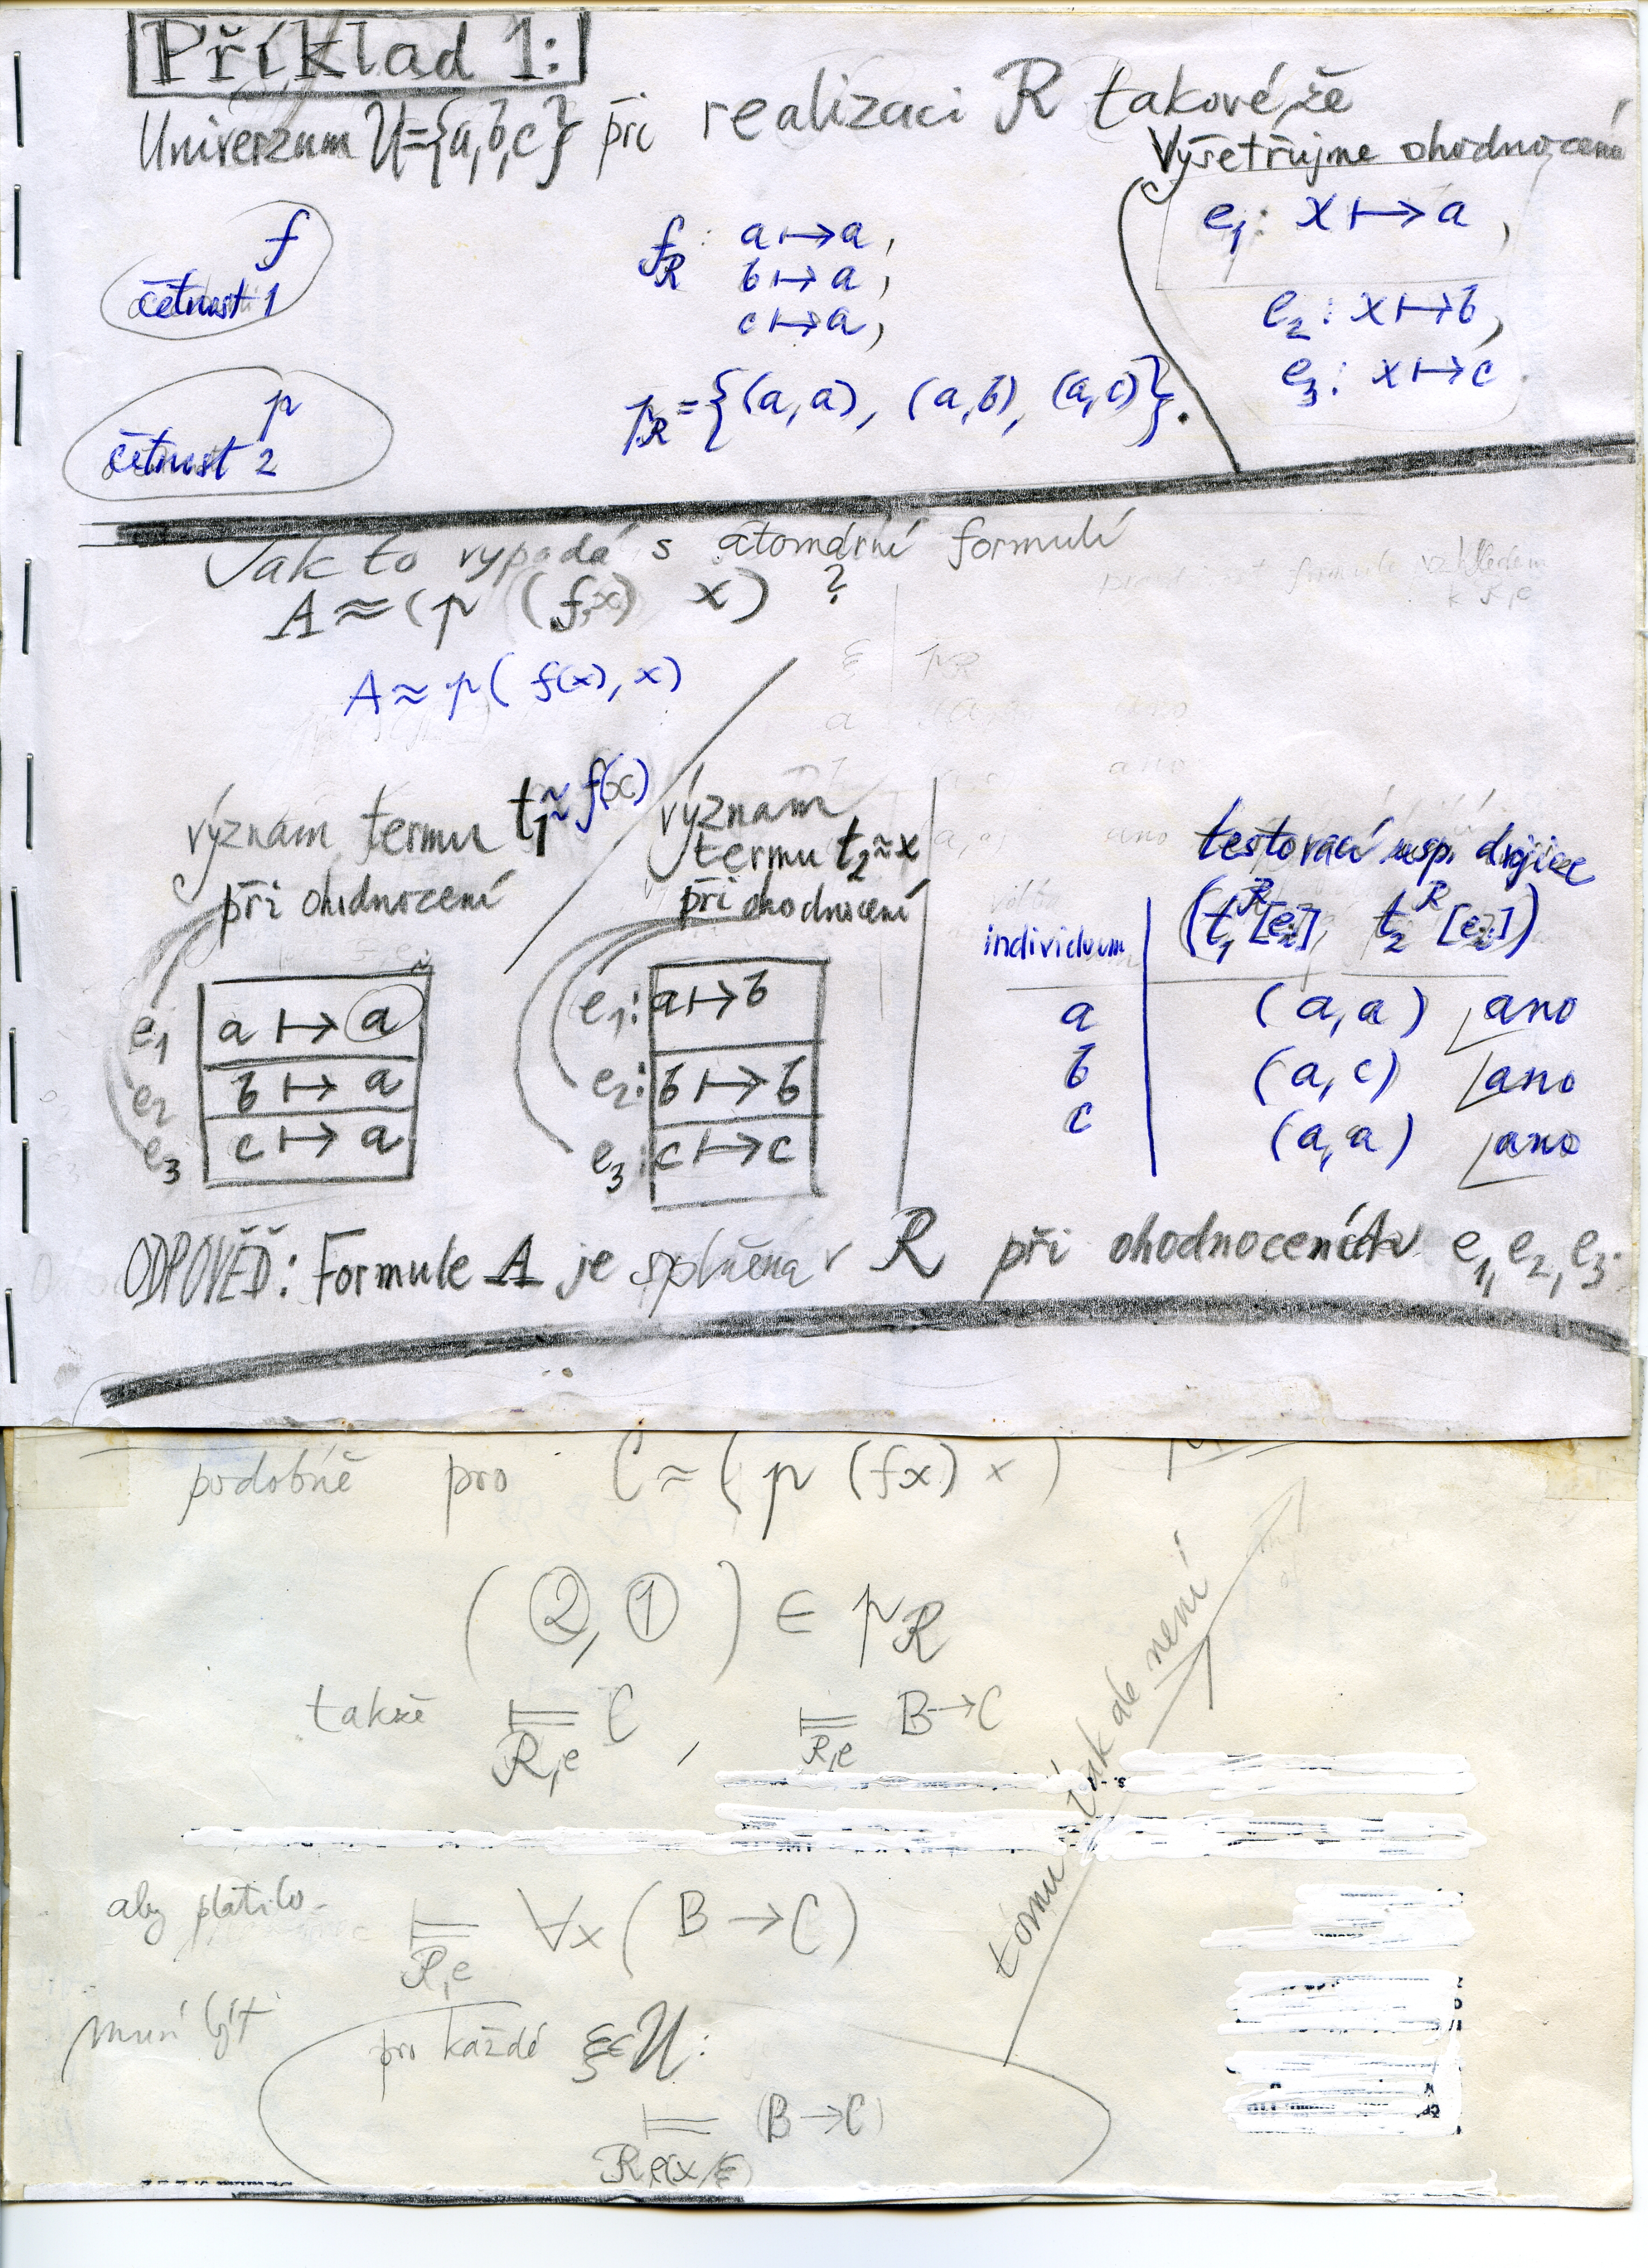 Příklad 1:
Univerzum U={a,b,c} při realizaci R takové, že
Vyšetřujme ohodnocení
e₁: x ↦ a,
e₂: x ↦ b,
e₃: x ↦ c.
f
četnost 1
f_R: a ↦ a,
b ↦ a,
c ↦ a,
p
četnost 2
p_R = {(a,a), (a,b), (a,c)}.
Jak to vypadá s atomární formulí
A ≈ (p (f x) x) ?
A ≈ p( f(x), x)
význam termu t₁ ≈ f(x)
při ohodnocení
e₁ a ↦ a
e₂ b ↦ a
e₃ c ↦ a
význam
termu t₂ ≈ x
při ohodnocení
e₁: a ↦ b
e₂: b ↦ b
e₃: c ↦ c
testovací usp. dvojice
individuum (t₁^R[e], t₂^R[e])
a (a,a) ano
b (a,c) ano
c (a,a) ano
ODPOVĚĎ: Formule A je splněna v R při ohodnoceních e₁, e₂, e₃.
podobně pro C ≈ (p (fx) x)
(②, ①) ∈ p_R
takže ⊨_{R,e} C , ⊨_{R,e} B→C
tomu však ale není
aby platilo
⊨_{R,e} ∀x (B → C)
musí být
pro každé ξ∈U:
⊨_{R,e(x/ξ)} (B → C)